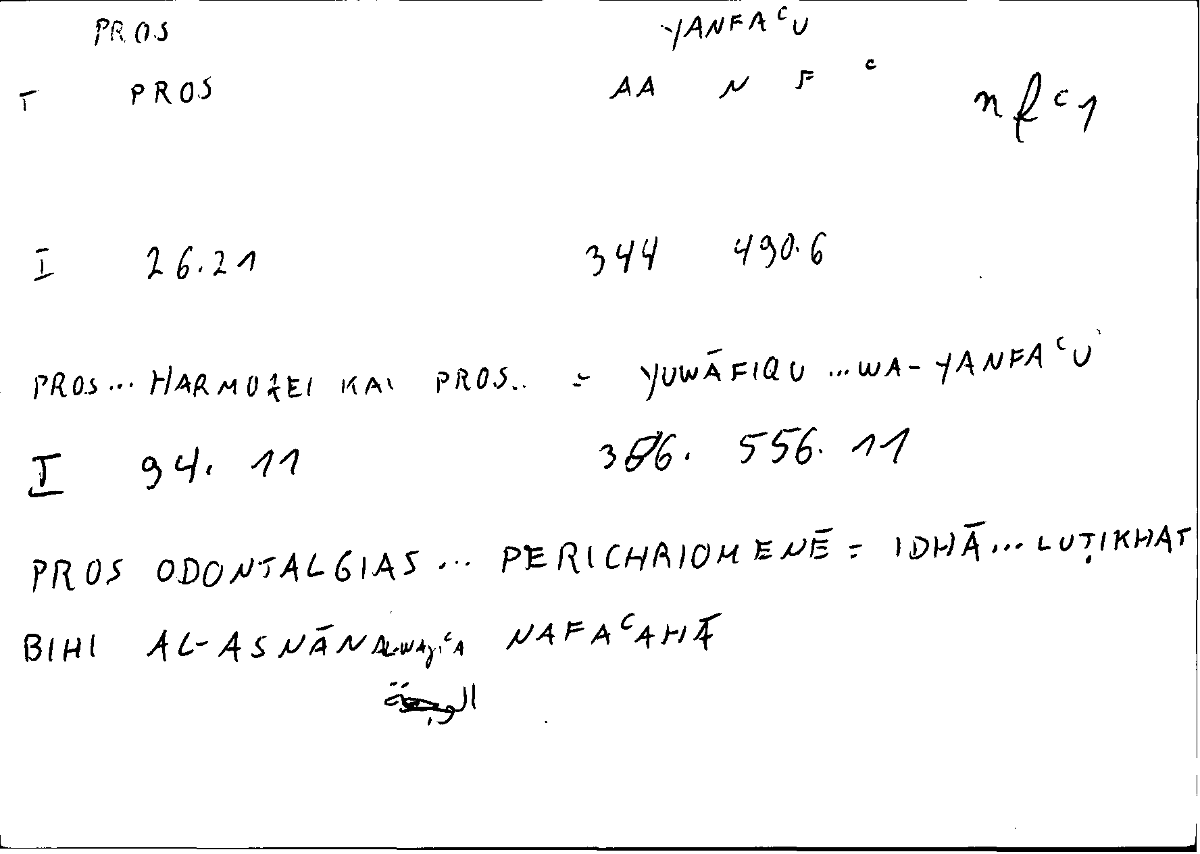 PROS YANFAᶜU
T PROS AA N F ᶜ nfᶜ1
I 26.21 344 490.6
PROS... HARMOZEI KAI PROS.. = YUWĀFIQU ...WA-YANFAᶜU
I 94. 11 386. 556. 11
PROS ODONTALGIAS ... PERICHRIOMENĒ = IDHĀ... LUṬIKHAT
BIHI AL-ASNĀN AL-WAJIᶜA NAFAᶜAHĀ
الوجعة